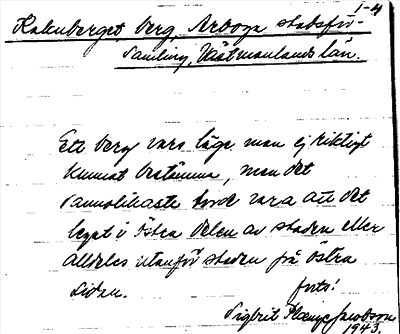 1-4
Kakuberget, berg, Arboga stadsför-
samling, Västmanlands län.
Ett berg vars läge man ej riktigt
kunnat bestämma, men det
sannolikaste torde vara att det
legat i östra delen av staden eller
alldeles utanför staden på östra
sidan.
forts!
Sigbrit Jacobson
1943.